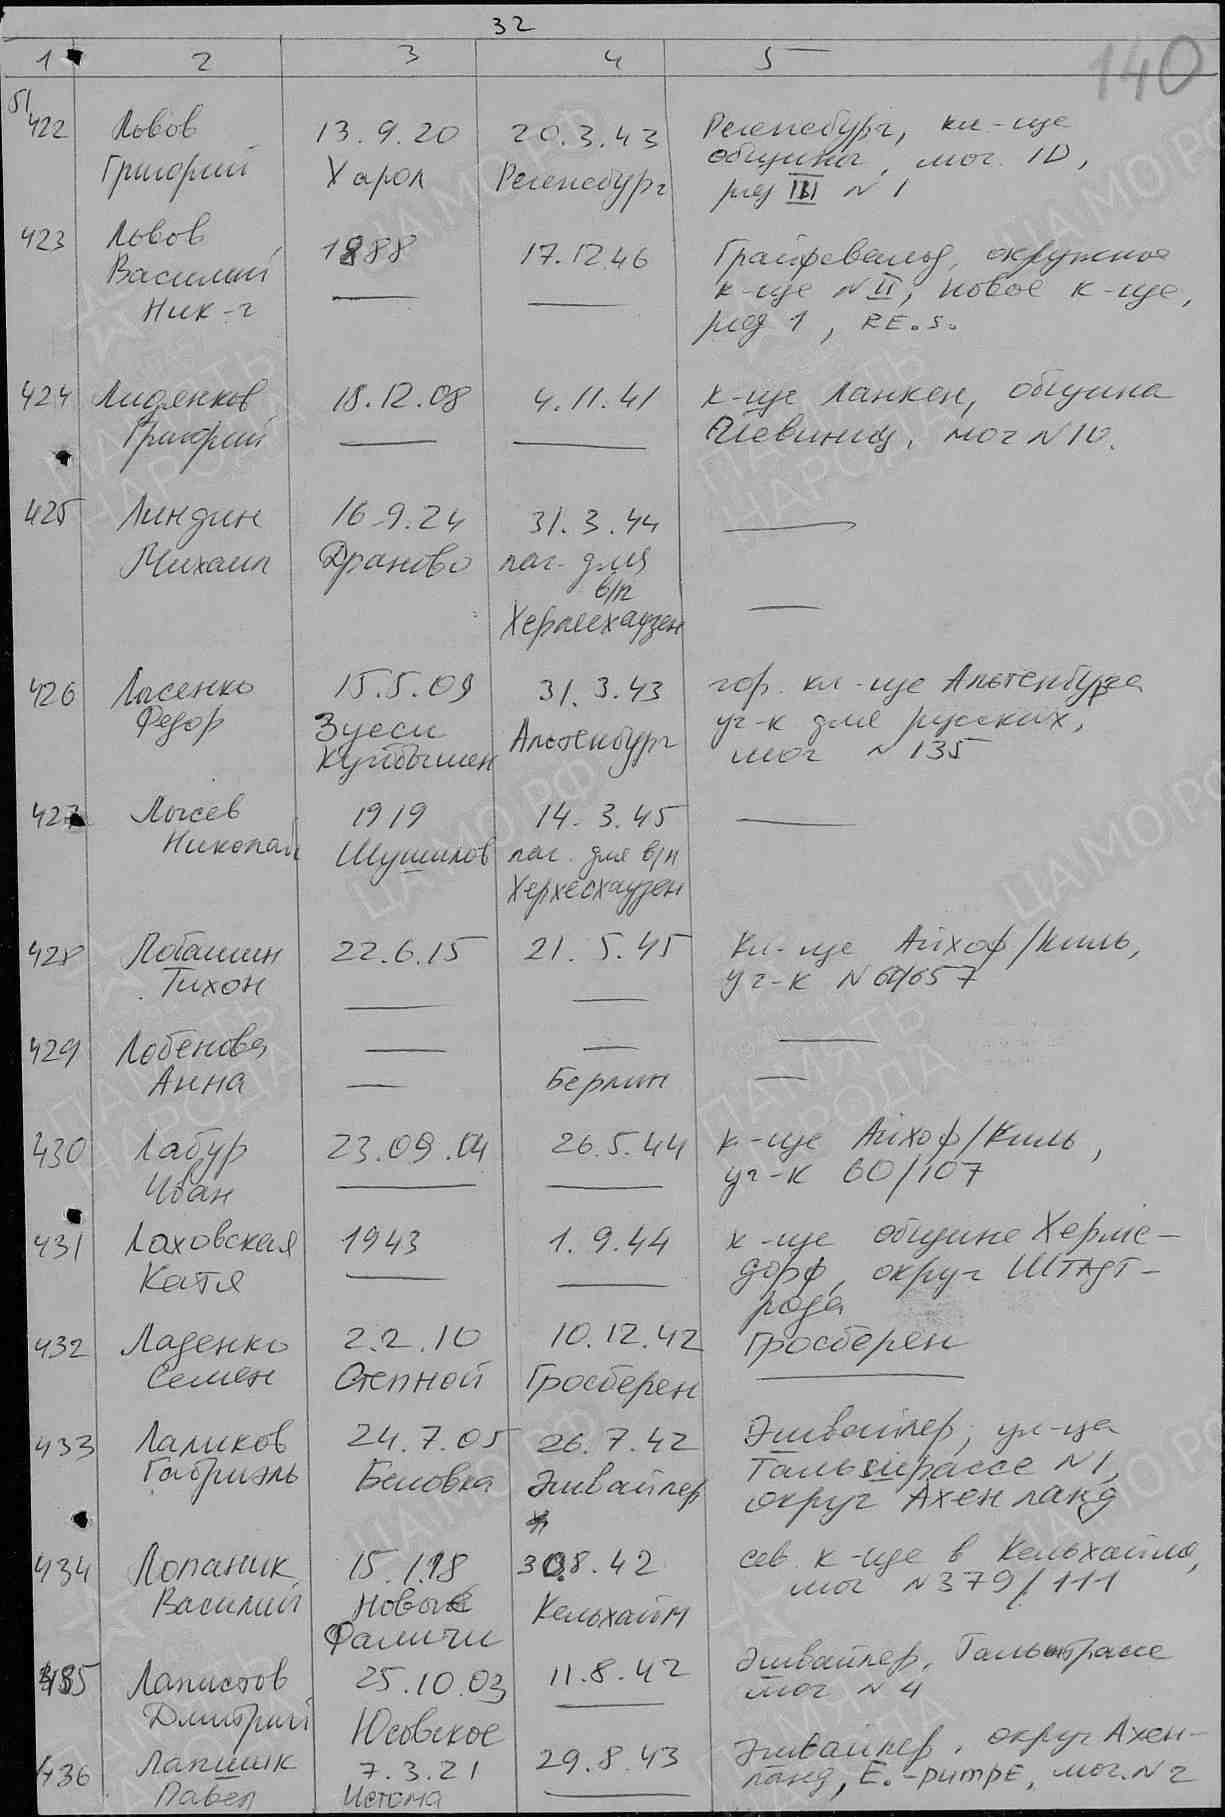 32
140
1 2 3 4 5
б/
422 Львов 13.9.20 20.3.43 Регенсбург, кл-ще
Григорий Харол Регенсбург община, мог. 1D,
ряд III N 1
423 Львов 1888 17.12.46 Грайфевальд, окружное
Василий — — к-ще N II, новое к-ще,
Ник-ч ряд 1, RE.S.
424 Лиденков 18.12.08 4.11.41 к-ще Ланкен, община
Григорий — — мог N 10.
425 Линдин 16.9.24 31.3.44 —
Михаил Драново лаг. для
в/п —
Хермесхаузен
426 Лисенко 15.5.09 31.3.43 гор. кл-ще Альтенбурга
Федор Зуеси Альтенбург уч-к для русских,
Куйбышен мог N 135
427 Лысев 1919 14.3.45 —
Николай Шушилов лаг. для в/п
Херлесхаузен
428 Лобашин 22.6.15 21.5.45 Кл-ще Айхоф/Киль,
Тихон — — уч-к N 60/657
429 Лобенова — — —
Анна — Берлин —
430 Лабур 23.09.04 26.5.44 к-ще Айхоф/Киль,
Иван — — уч-к 60/107
431 Лаховская 1943 1.9.44 к-ще общине Хермс-
Катя — — дорф, округ Штадт-
рода
432 Ладенко 2.2.10 10.12.42 Гросберен
Семен Степной Гросберен —
433 Лаликов 24.7.05 26.7.42 Эшвайлер, ул-ца
Габриэль Беловка Эшвайлер Тальштрассе N1,
округ Ахен ланд
434 Лопаник 15.1.18 30.8.42 сев. к-ще в Кельхайме,
Василий Новые Кельхайм мог N 379/111
Фаличи
435 Лапистов 25.10.03 11.8.42 Эшвайлер, Тальштрассе
Дмитрий Юсовское — мог N 4
436 Лапшик 7.3.21 29.8.43 Эшвайлер, округ Ахен-
Павел Истома — ланд, E.-pumpE, мог. N 2